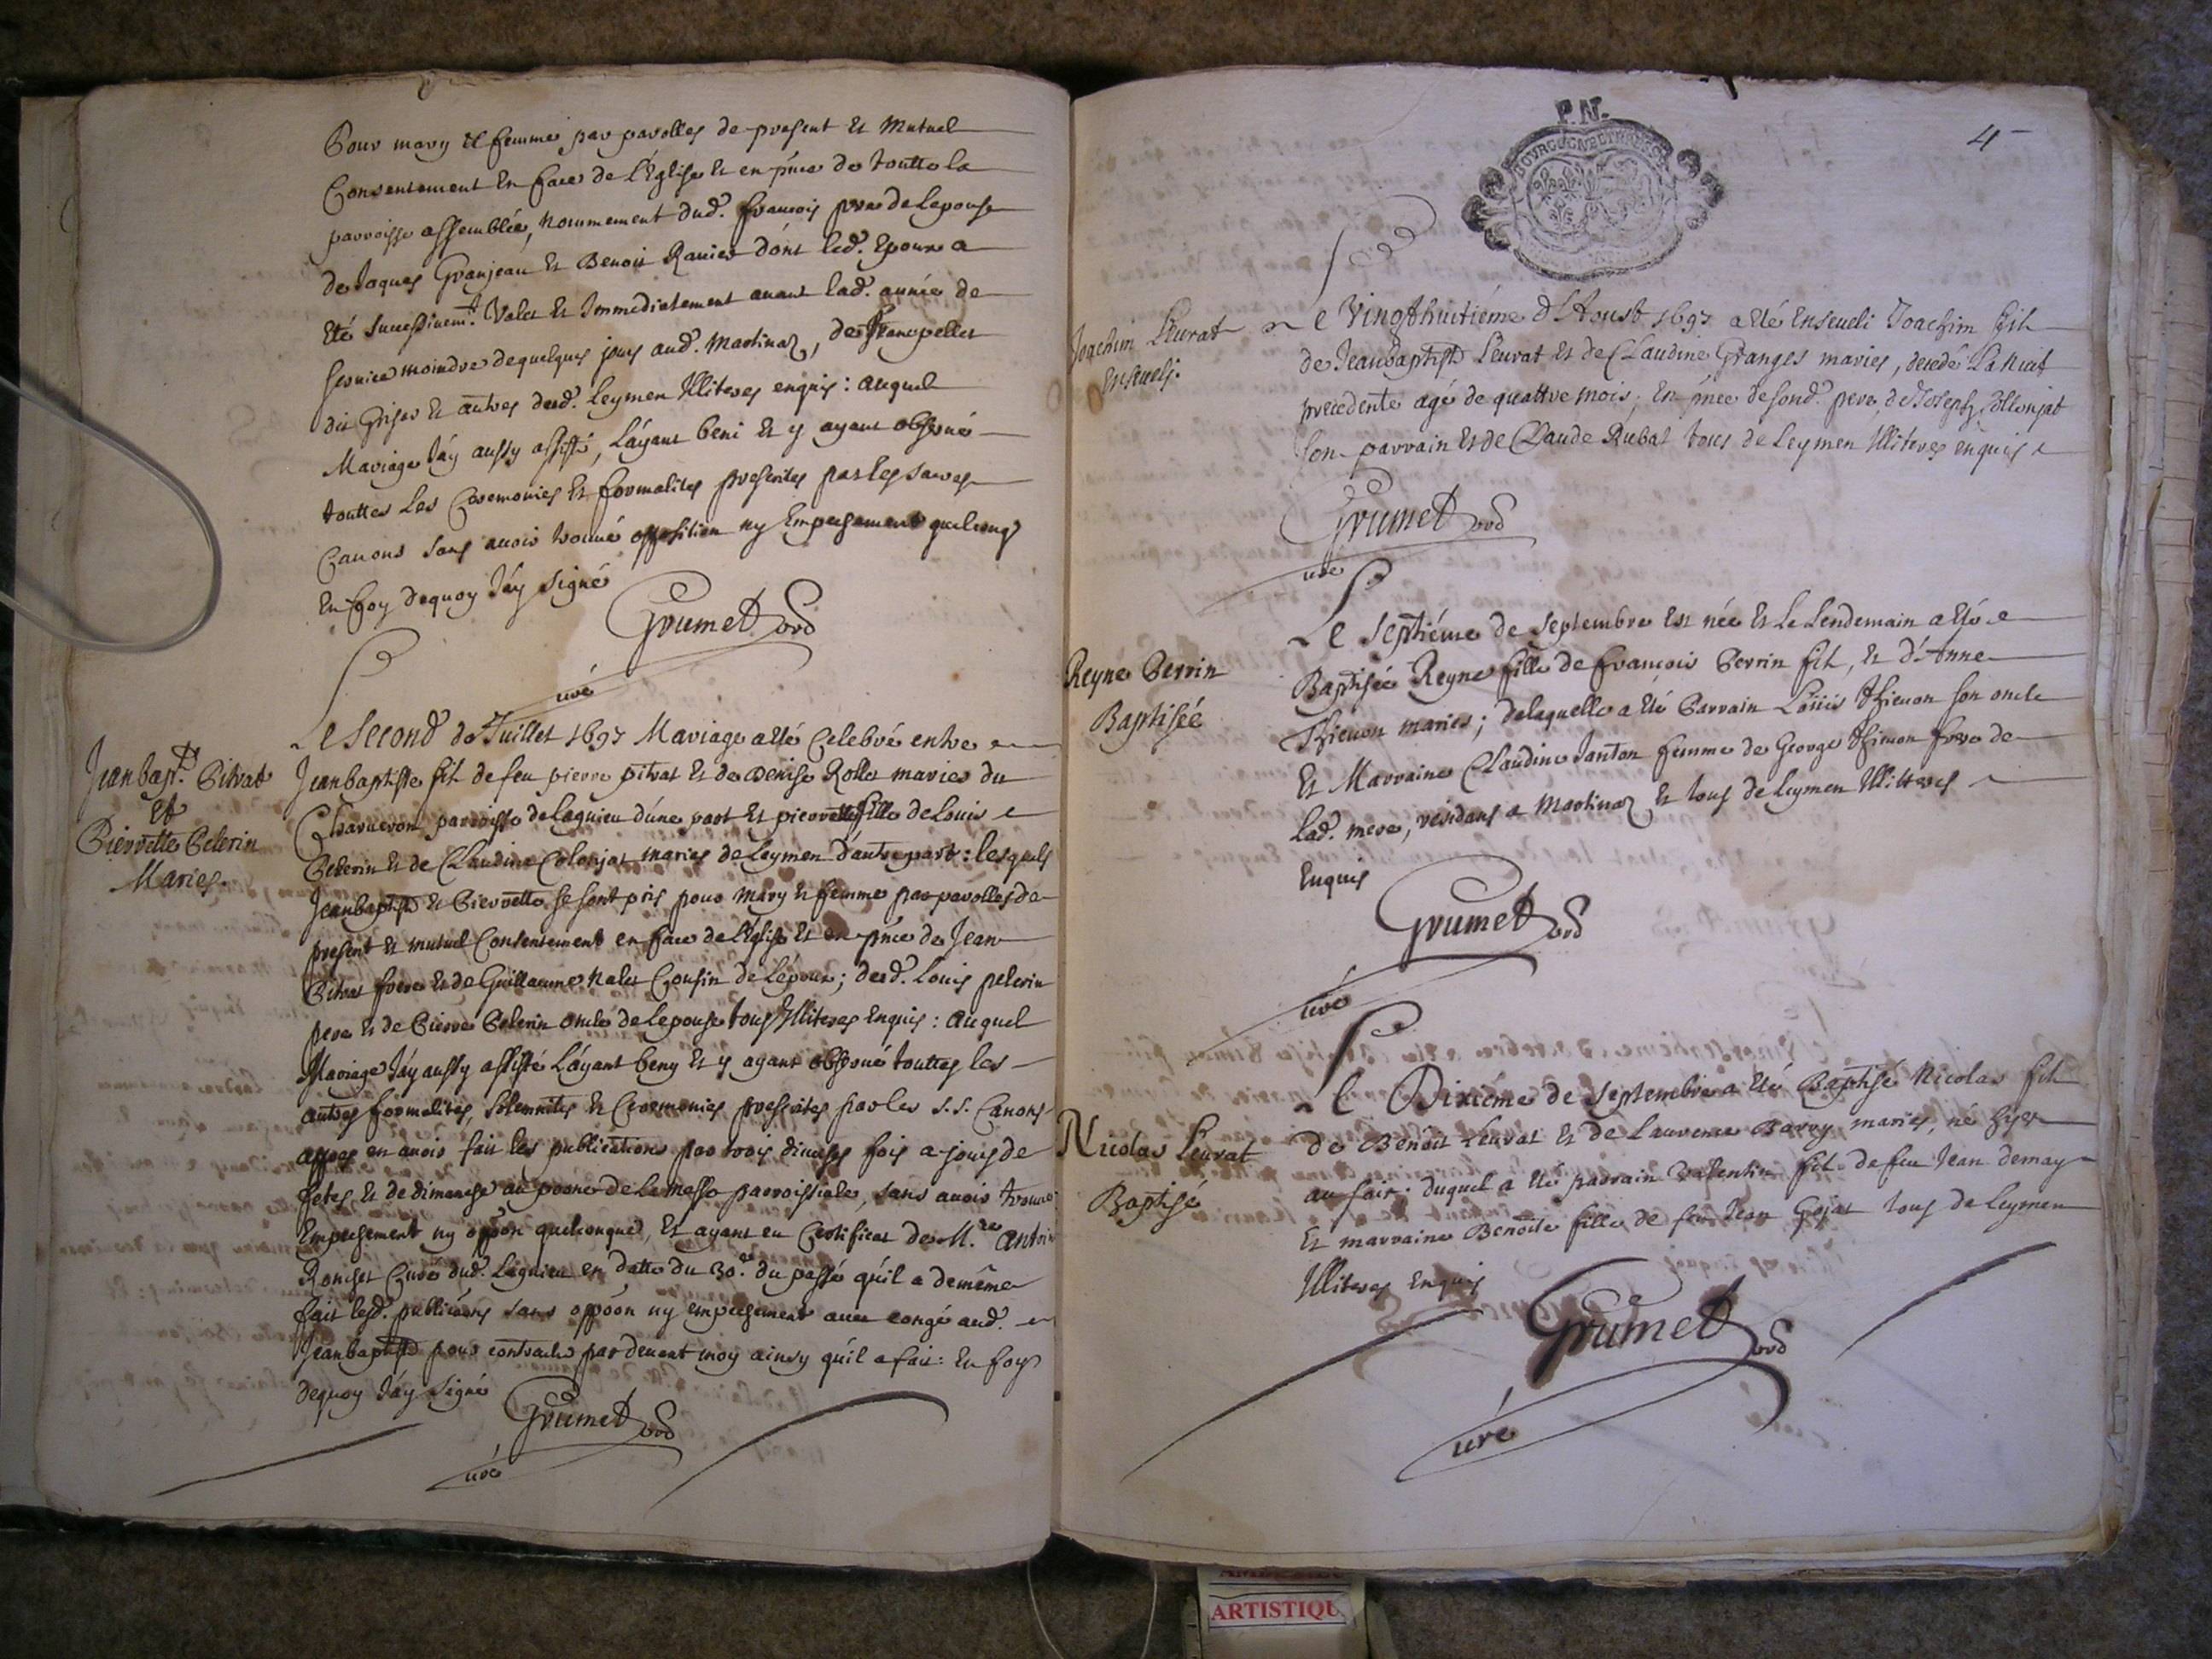 Pour mary et femme par parolles de present et mutuel
Consentement en face de l'Eglise et en p̃nce de toutte la
parroisse assemblée, nommement dud. francois pere de lepouse
de Jaques Granjean et Benoit Ravier dont led. Epoux a
été successivem.t valet et Immediatement avant lad. année de
service moindre de quelques jours aud. Martinaz, de
dit Griser et autres dud. Leymen Illiteres enquis : auquel
Mariage J'ay aussy assisté, L'ayant beni et y ayant observé
touttes les Ceremonies et formalites prescrites par les sacres
Canons sans avoir trouvé opposition ny Empechement quelconq
En foy dequoy J'ay signé
Grumet
curé
Jeanbap.te Pitrat
et
Pierrette Pelerin
Maries.
Le second de Juillet 1697 Mariage a été Celebré entre
Jeanbaptiste fils de feu pierre pitrat et de Denise Rollet maries du
Charveron parroisse de Lagnieu d'une part et pierrette fille de Louis
Pelerin et de Claudine Colonjat maries de Leymen d'autre part : lesquels
Jeanbaptiste et Pierrette se sont pris pour mary et femme par parolles de
present et mutuel Consentement en face de l'Eglise et en p̃nce de Jean
Pitrat frere et de Guillaume Nalet Cousin de L'époux ; dud. Louis pelerin
pere et de Pierre Pelerin oncle de Lepouse tous Illiteres Enquis : auquel
Mariage J'ay aussy assisté L'ayant beny et y ayant observé touttes les
autres formalites, solemnites et Ceremonies prescrites par les S.S. Canons
apres en avoir fait les publications par trois diverses fois a jours de
fetes et de dimanche au prone de la Messe parroissiale, sans avoir trouvé
Empechement ny oppõon quelconque, Et ayant eu Certificat de M.re Antoin
Ronchet Curé dud. Lagnieu en datte du 30.e du passé qu'il a demême
fait lesd. publicãons sans oppõon ny empechement avec congé aud.
Jeanbaptiste pour contracter pardevant moy ainsy qu'il a fait : En foy
dequoy J'ay signé
Grumet
curé
P.N.
4
BOURGOGNE ET BRESSE
Joachim Leurat
Enseveli.
Le Vingthuitiéme d'Aoust 1697 a été Enseveli Joachim fils
de Jeanbaptiste Leurat et de Claudine Granges maries, decedé La Nuit
precedente agé de quattre mois ; en p̃nce de sond. pere, de Joseph Colonjat
son parrain et de Claude Rubat tous de Leymen Illiteres enquis
Grumet
curé
Reyne Perrin
Baptisée
Le septiéme de Septembre est née et Le Lendemain a été
Baptisée Reyne fille de francois Perrin fils, et d'Anne
Thievon maries ; de laquelle a été Parrain Loüis Thievon son oncle
Et Marraine Claudine Janton femme de George Thievon frere de
Lad. mere, residans a Martinaz et tous de Leymen Illitteres
Enquis
Grumet
curé
Nicolas Leurat
Baptisé
Le Dixiéme de Septembre a été Baptisé Nicolas fils
de Benoit Leurat et de Laurence Barry maries, né hyer
au soir : duquel a été parrain Valentin fils de feu Jean demay
Et marraine Benoite fille de feu Jean Gojat tous de Leymen
Illiteres Enquis
Grumet
curé
ARTISTIQU